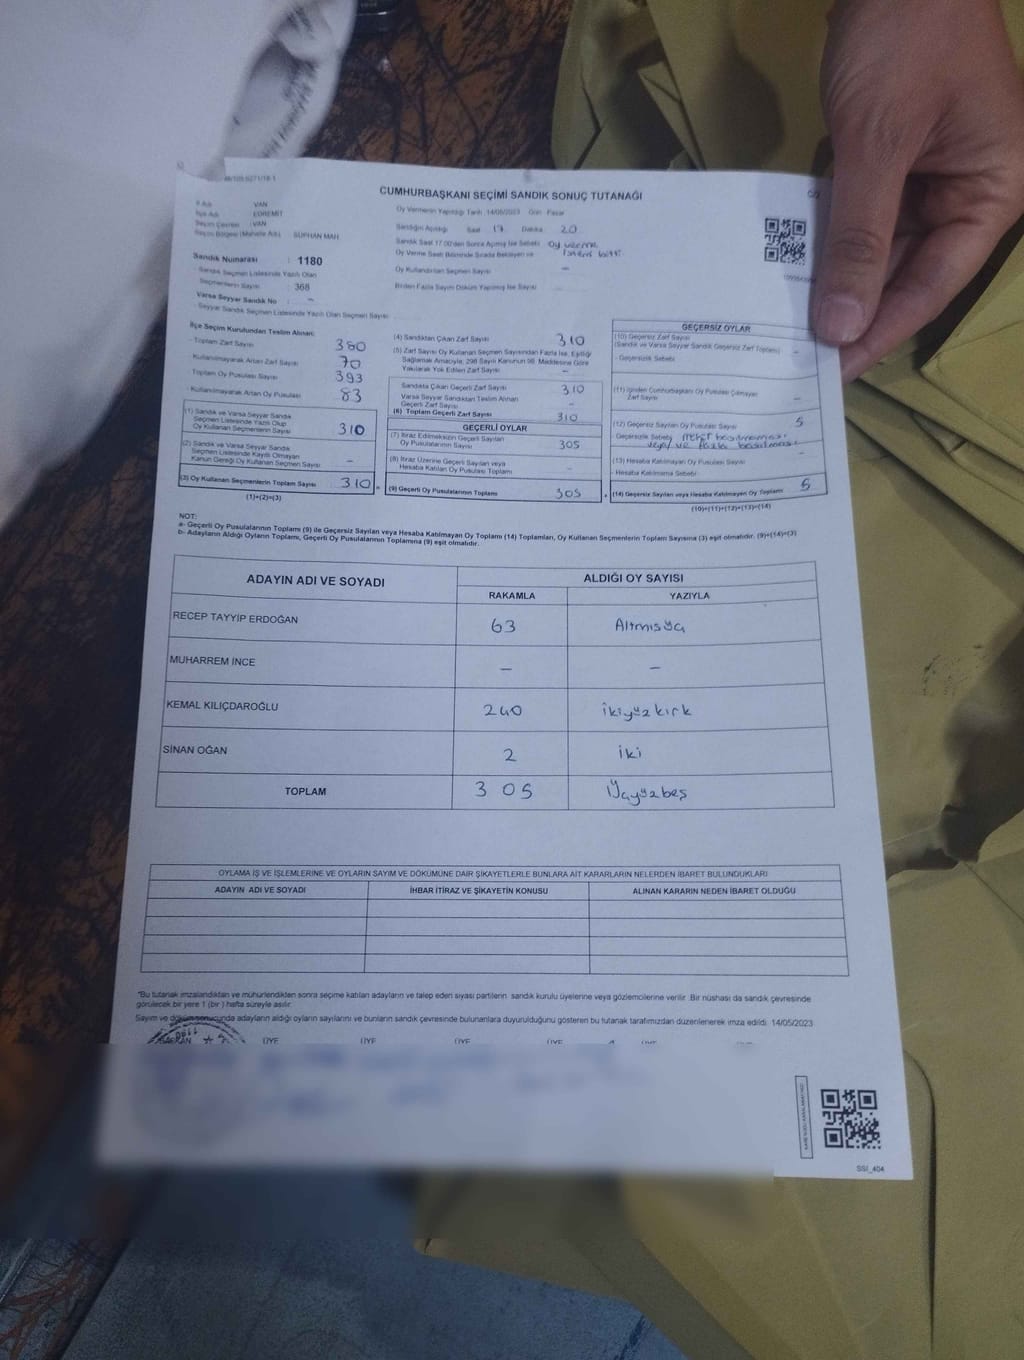 CUMHURBAŞKANI SEÇİMİ SANDIK SONUÇ TUTANAĞI
İl Adı VAN
İlçe Adı EDREMİT
Seçim Çevresi VAN
Seçim Bölgesi (Mahalle Adı) SÜPHAN MAH.
Sandık Numarası : 1180
Sandık Seçmen Listesinde Yazılı Olan
Seçmenlerin Sayısı : 368
Varsa Seyyar Sandık No : –
Seyyar Sandık Seçmen Listesinde Yazılı Olan Seçmen Sayısı
Oy Vermenin Yapıldığı Tarih 14/05/2023 Gün Pazar
Sandığın Açıldığı Saat 17 Dakika 20
Sandık Saat 17.00'den Sonra Açılmış İse Sebebi Oy verme
Oy Verme Saati Bitiminde Sırada Bekleyen ve
Oy Kullandırılan Seçmen Sayısı –
Birden Fazla Sayım Döküm Yapılmış İse Sayısı
İlçe Seçim Kurulundan Teslim Alınan:
- Toplam Zarf Sayısı 380
- Kullanılmayarak Artan Zarf Sayısı 70
- Toplam Oy Pusulası Sayısı 393
- Kullanılmayarak Artan Oy Pusulası Sayısı 83
(1) Sandık ve Varsa Seyyar Sandık
Seçmen Listesinde Yazılı Olup
Oy Kullanan Seçmenlerin Sayısı 310
(2) Sandık ve Varsa Seyyar Sandık
Seçmen Listesinde Kayıtlı Olmayan
Kanun Gereği Oy Kullanan Seçmen Sayısı –
(3) Oy Kullanan Seçmenlerin Toplam Sayısı 310
(1)+(2)=(3)
(4) Sandıktan Çıkan Zarf Sayısı 310
(5) Zarf Sayısı Oy Kullanan Seçmen Sayısından Fazla İse, Eşitliği
Sağlamak Amacıyla, 298 Sayılı Kanunun 98. Maddesine Göre
Yakılarak Yok Edilen Zarf Sayısı –
Sandıkta Çıkan Geçerli Zarf Sayısı 310
Varsa Seyyar Sandıktan Teslim Alınan
Geçerli Zarf Sayısı –
(6) Toplam Geçerli Zarf Sayısı 310
GEÇERLİ OYLAR
(7) İtiraz Edilmeksizin Geçerli Sayılan
Oy Pusulalarının Sayısı 305
(8) İtiraz Üzerine Geçerli Sayılan veya
Hesaba Katılan Oy Pusulası Toplamı –
(9) Geçerli Oy Pusulalarının Toplamı 305
GEÇERSİZ OYLAR
(10) Geçersiz Zarf Sayısı
(Sandık ve Varsa Seyyar Sandık Geçersiz Zarf Toplamı) –
- Geçersizlik Sebebi
(11) İçinden Cumhurbaşkanı Oy Pusulası Çıkmayan
Zarf Sayısı –
(12) Geçersiz Sayılan Oy Pusulası Sayısı 5
Geçersizlik Sebebi mühür basılmaması
veya ve fazla basılması
(13) Hesaba Katılmayan Oy Pusulası Sayısı –
- Hesaba Katılmama Sebebi
(14) Geçersiz Sayılan veya Hesaba Katılmayan Oy Toplamı 5
(10)+(11)+(12)+(13)=(14)
NOT:
a- Geçerli Oy Pusulalarının Toplamı (9) ile Geçersiz Sayılan veya Hesaba Katılmayan Oy Toplamı (14) Toplamları, Oy Kullanan Seçmenlerin Toplam Sayısına (3) eşit olmalıdır. (9)+(14)=(3)
b- Adayların Aldığı Oyların Toplamı, Geçerli Oy Pusulalarının Toplamına (9) eşit olmalıdır.
ADAYIN ADI VE SOYADI ALDIĞI OY SAYISI
RAKAMLA YAZIYLA
RECEP TAYYİP ERDOĞAN 63 Altmışüç
MUHARREM İNCE – –
KEMAL KILIÇDAROĞLU 240 ikiyüzkırk
SİNAN OĞAN 2 iki
TOPLAM 305 Üçyüzbeş
OYLAMA İŞ VE İŞLEMLERİNE VE OYLARIN SAYIM VE DÖKÜMÜNE DAİR ŞİKAYETLERLE BUNLARA AİT KARARLARIN NELERDEN İBARET BULUNDUKLARI
ADAYIN ADI VE SOYADI İHBAR İTİRAZ VE ŞİKAYETİN KONUSU ALINAN KARARIN NEDEN İBARET OLDUĞU
*Bu tutanak imzalandıktan ve mühürlendikten sonra seçime katılan adayların ve talep eden siyasi partilerin sandık kurulu üyelerine veya gözlemcilerine verilir. Bir nüshası da sandık çevresinde
görülecek bir yere 1 (bir) hafta süreyle asılır.
Sayım ve döküm sonucunda adayların aldığı oyların sayılarını ve bunların sandık çevresinde bulunanlara duyurulduğunu gösteren bu tutanak tarafımızdan düzenlenerek imza edildi. 14/05/2023
BAŞKAN ÜYE ÜYE ÜYE ÜYE
SSİ_404